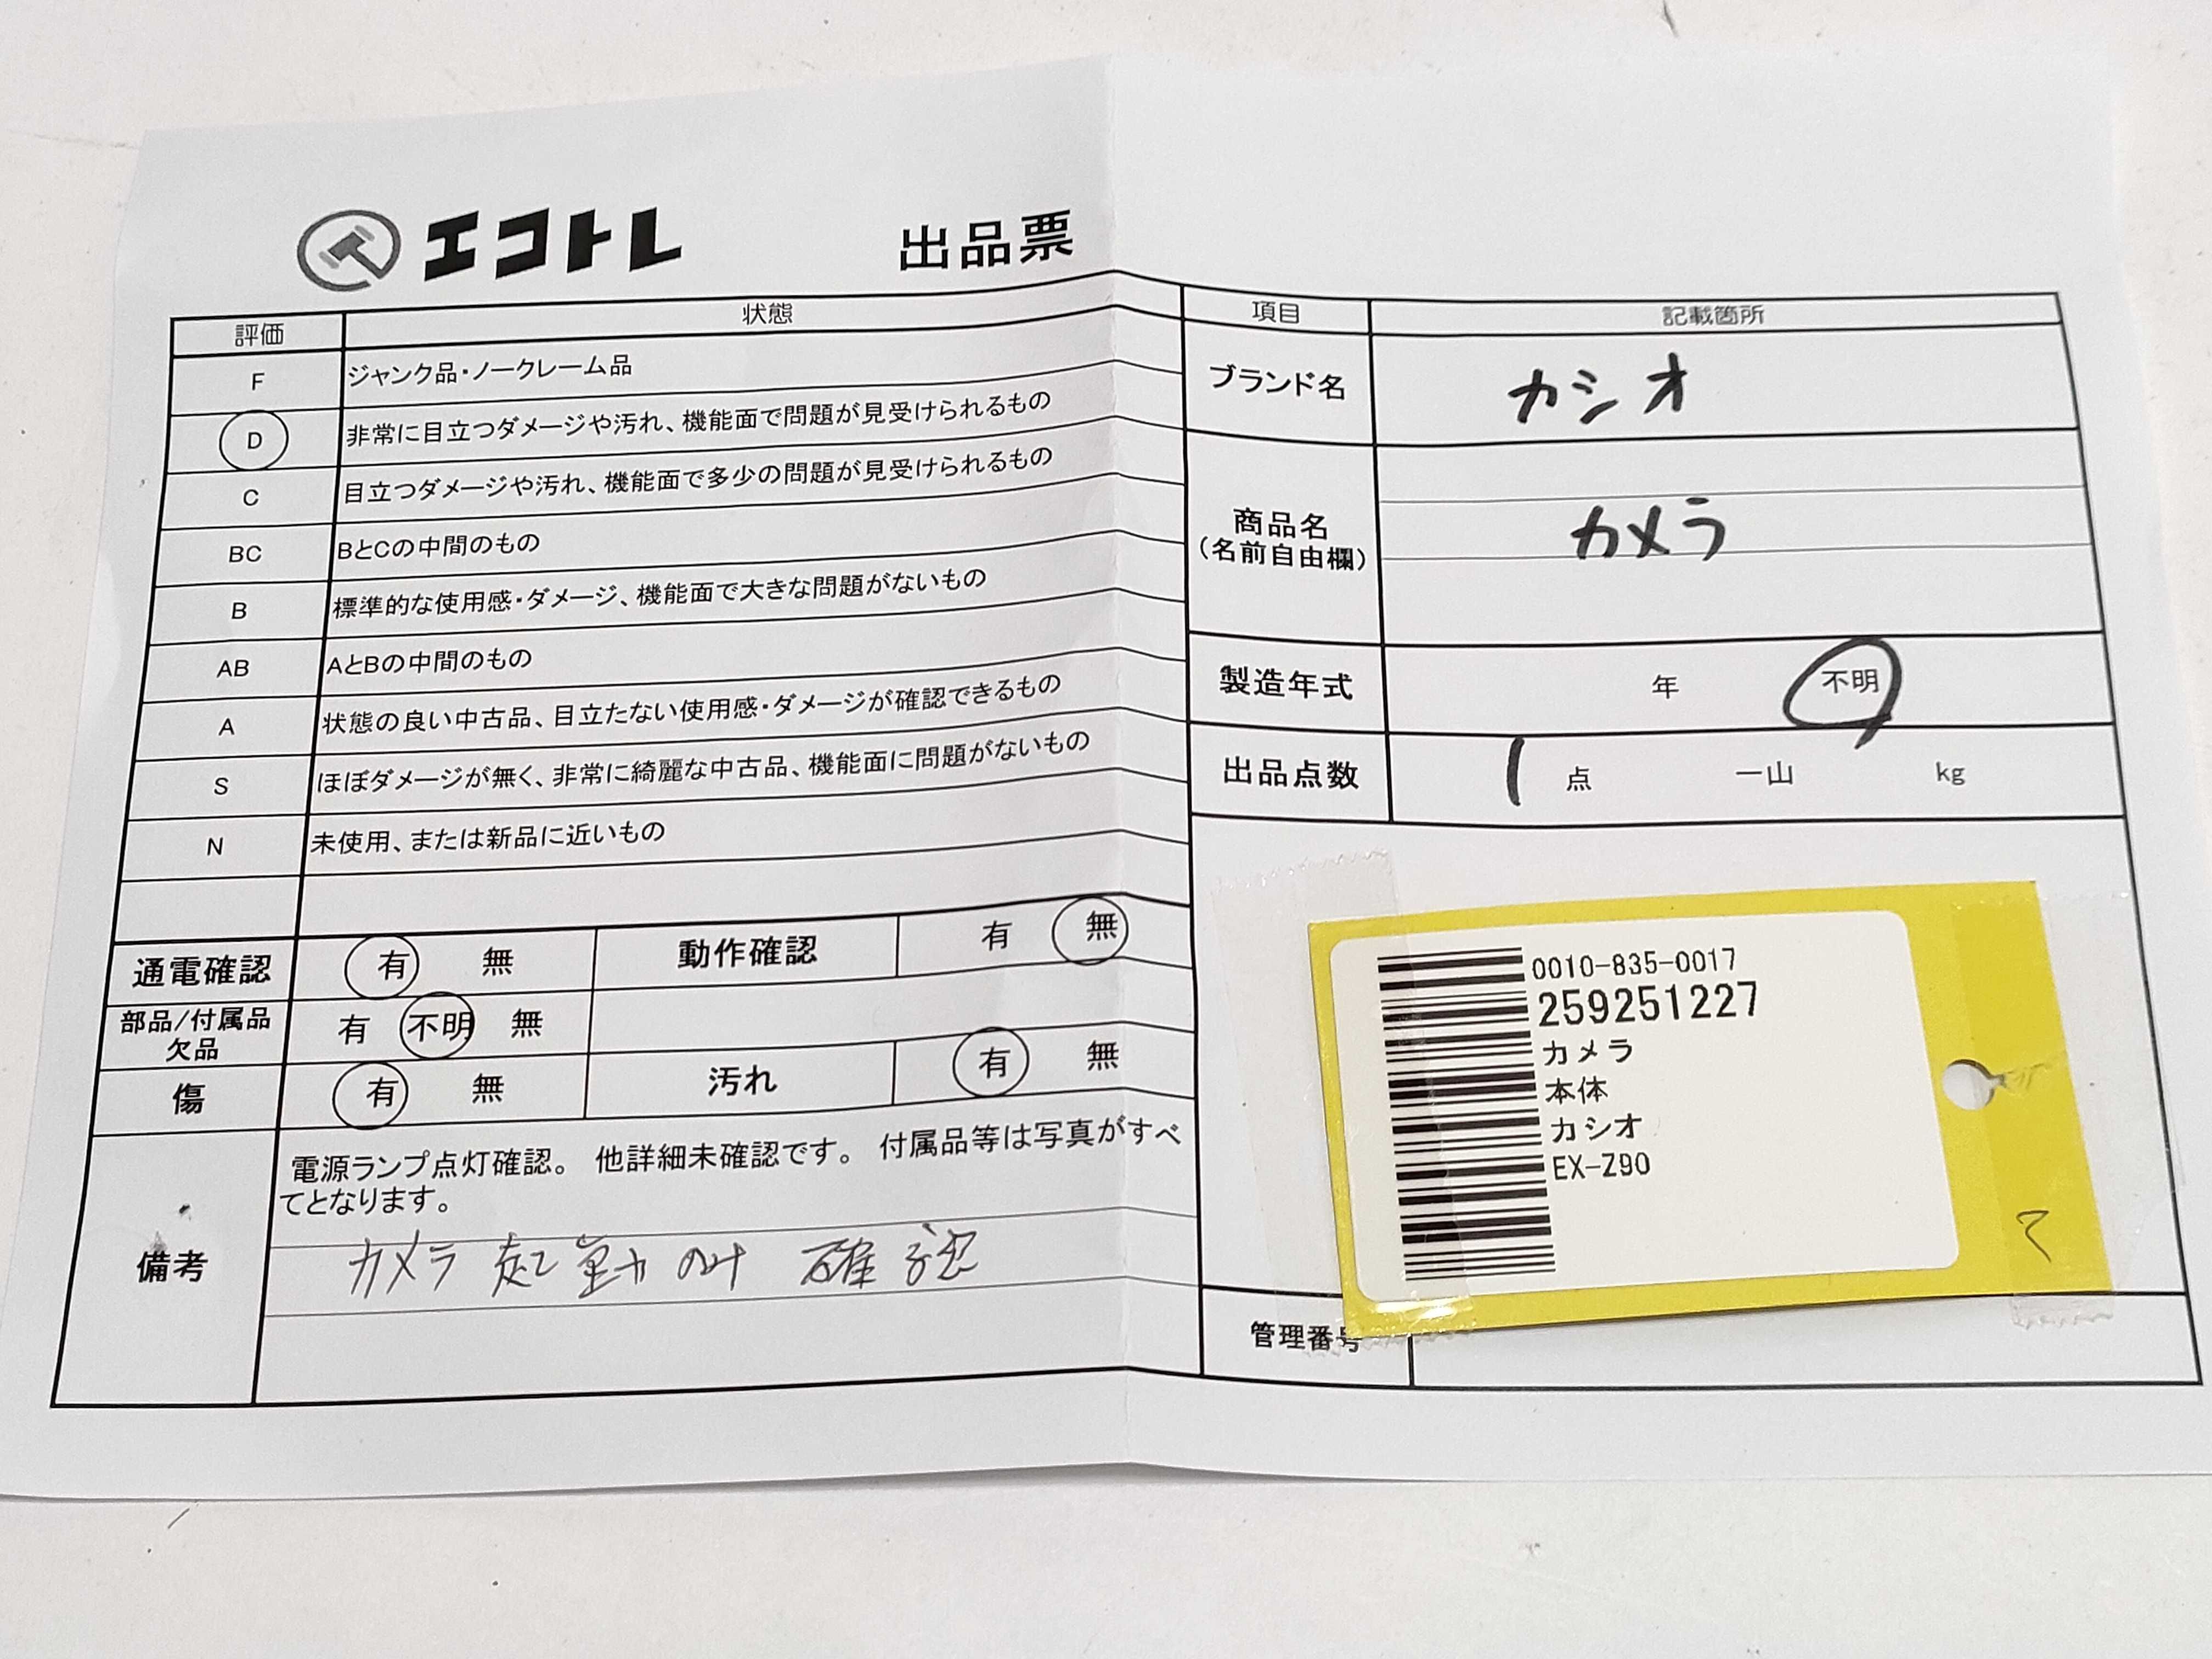 エコトレ 出品票
評価 状態
F ジャンク品・ノークレーム品
D 非常に目立つダメージや汚れ、機能面で問題が見受けられるもの
C 目立つダメージや汚れ、機能面で多少の問題が見受けられるもの
BC BとCの中間のもの
B 標準的な使用感・ダメージ、機能面で大きな問題がないもの
AB AとBの中間のもの
A 状態の良い中古品、目立たない使用感・ダメージが確認できるもの
S ほぼダメージが無く、非常に綺麗な中古品、機能面に問題がないもの
N 未使用、または新品に近いもの
通電確認 有 無 動作確認 有 無
部品/付属品 有 不明 無
欠品
傷 有 無 汚れ 有 無
備考
電源ランプ点灯確認。 他詳細未確認です。 付属品等は写真がすべ
てとなります。
カメラ起動のみ 確認
項目 記載箇所
ブランド名 カシオ
商品名 カメラ
(名前自由欄)
製造年式 年 不明
出品点数 1 点 一山 kg
0010-835-0017
259251227
カメラ
本体
カシオ
EX-Z90
管理番号